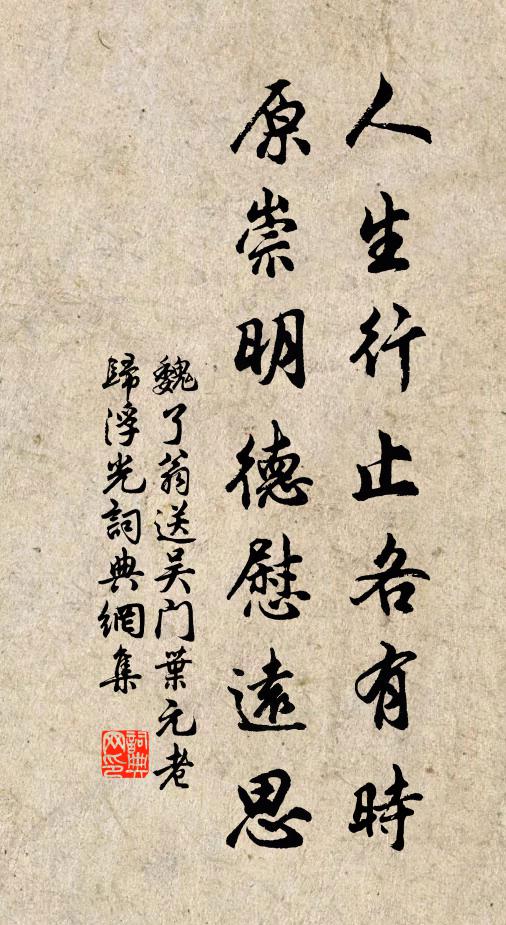 人生行止各有時
原崇明德慰遠思
魏了翁送吴门葉元老
歸浮光詞典網集
詞典网印